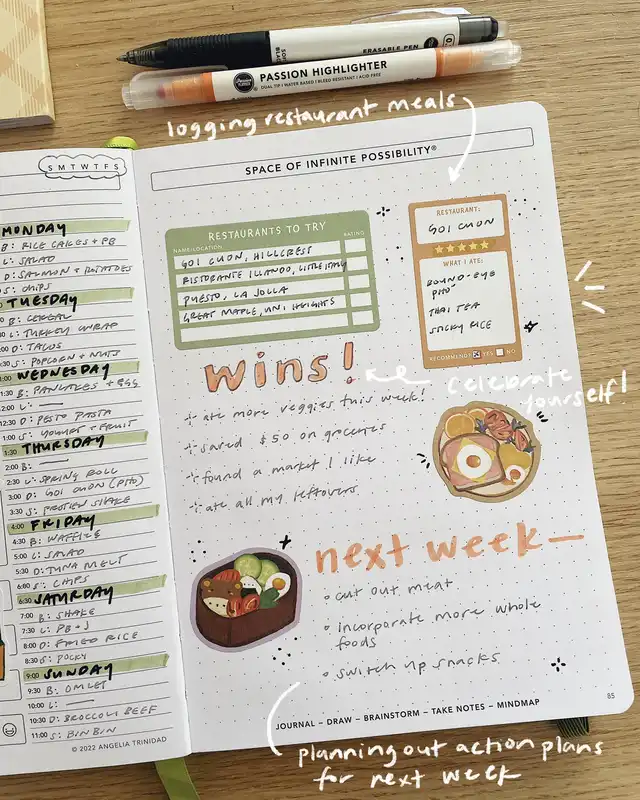 ERASABLE PEN
PASSION HIGHLIGHTER
DUAL TIP | WATER BASED | BLEED RESISTANT | ACID FREE
logging restaurant meals
S M T W T F S
MONDAY
B: RICE CAKES + PB
L: SALAD
D: SALMON + POTATOES
S: CHIPS
TUESDAY
B: CEREAL
L: TURKEY WRAP
D: TACOS
S: POPCORN + NUTS
WEDNESDAY
B: PANCAKES + EGG
L: —
D: PESTO PASTA
S: YOGURT + FRUIT
THURSDAY
B: —
L: SPRING ROLL
D: GOI CUON (PHO)
S: PROTEIN SHAKE
FRIDAY
B: WAFFLE
L: SALAD
D: TUNA MELT
S: CHIPS
SATURDAY
B: SHAKE
L: PB + J
D: FRIED RICE
S: POCKY
SUNDAY
B: OMLET
L: —
D: BROCCOLI BEEF
S: BINBIN
1:30
2:00
2:30
3:00
3:30
4:00
4:30
5:00
5:30
6:00
6:30
7:00
7:30
8:00
8:30
9:00
9:30
10:00
10:30
11:00
© 2022 ANGELIA TRINIDAD
SPACE OF INFINITE POSSIBILITY®
RESTAURANTS TO TRY
NAME/LOCATION: RATING
GOI CUON, HILLCREST
RISTORANTE ILLANDO, LITTLE ITALY
PUESTO, LA JOLLA
GREAT MAPLE, UNI HEIGHTS
RESTAURANT:
GOI CUON
WHAT I ATE:
ROUND-EYE
PHO
THAI TEA
STICKY RICE
RECOMMEND? YES NO
wins!
celebrate
yourself!
ate more veggies this week!
saved $50 on groceries
found a market I like
ate all my leftovers
next week—
cut out meat
incorporate more whole
foods
switch up snacks
85
JOURNAL – DRAW – BRAINSTORM – TAKE NOTES – MINDMAP
planning out action plans
for next week